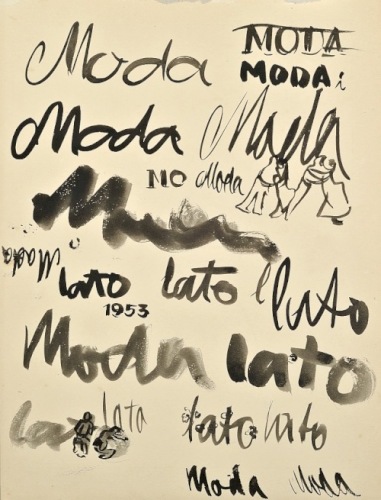 Moda MODA
MODA i
Moda Moda
MO Moda
M
Moda
lato lato l lato
1953
Moda lato
lato lata lato lato
Moda Moda